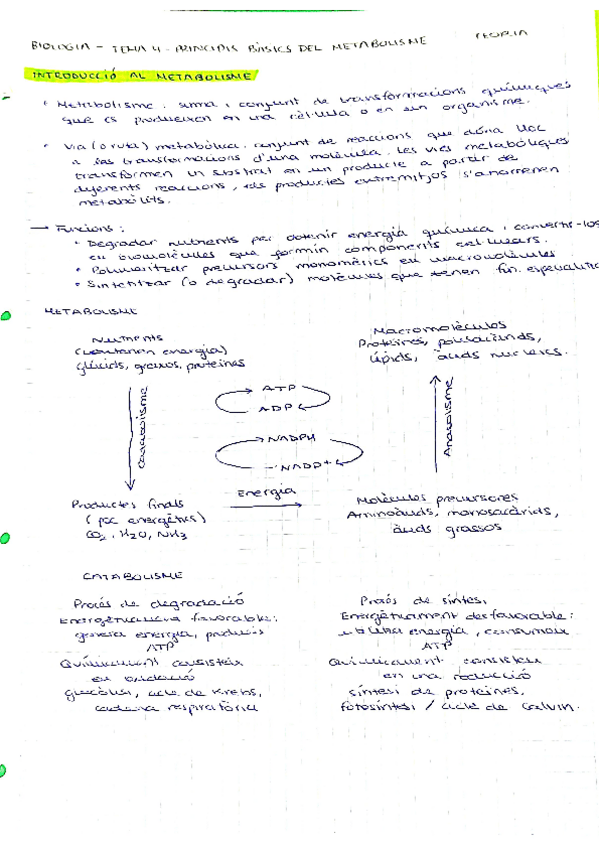 BIOLOGIA - TEMA 4 - PRINCIPIS BÀSICS DEL METABOLISME TEORIA
INTRODUCCIÓ AL METABOLISME
• Metabolisme: suma i conjunt de transformacions químiques
que es produeixen en una cèl·lula o en un organisme.
• Via (o ruta) metabòlica: conjunt de reaccions que dóna lloc
a les transformacions d'una molècula. Les vies metabòliques
transformen un substrat en un producte a partir de
diferents reaccions, els productes entremitjos s'anomenen
metabòlits.
→ Funcions:
• Degradar nutrients per obtenir energia química i convertir-los
en biomolècules que formin components cel·lulars.
• Polimeritzar precursors monomèrics en macromolècules
• Sintetitzar (o degradar) molècules que tenen fun. especialitz
METABOLISME
Nutrients
(contenen energia)
glúcids, greixos, proteïnes
Macromolècules
Proteïnes, polisacàrids,
lípids, àcids nucleics.
Catabolisme
ATP
ADP
NADPH
NADP+
Anabolisme
Productes finals
(poc energètics)
CO2, H2O, NH3
Energia
Molècules precursores
Aminoàcids, monosacàrids,
àcids grassos
CATABOLISME
Procés de degradació
Energèticament favorable:
genera energia, produeix
ATP
Químicament consisteix
en oxidació
glucòlisi, cicle de Krebs,
cadena respiratòria
Procés de síntesi,
Energèticament desfavorable:
energia, consumeix
ATP
Químicament consisteix
en una reducció
síntesi de proteïnes,
fotosíntesi / cicle de Calvin.